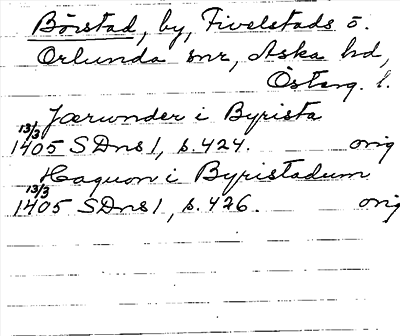 Börstad, by, Fivelstads ö.
Orlunda snr, Aska hd,
Österg. l.
Jærunder i Byrista
13/3 1405 SDns 1, s. 424. orig
Haquon i Byristadum
13/3 1405 SDns 1, s. 426. orig